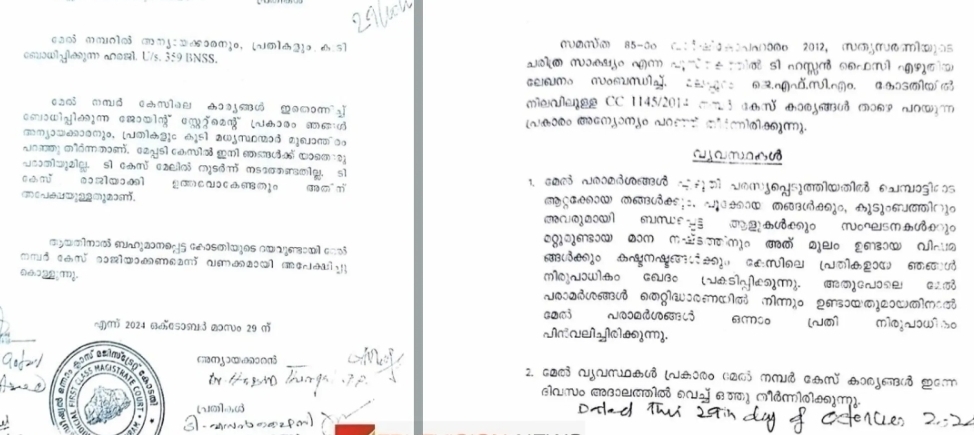 മേൽ നമ്പറിൽ അന്യായക്കാരനും, പ്രതികളും കൂടി
ബോധിപ്പിക്കുന്ന ഹരജി. U/s. 359 BNSS.
മേൽ നമ്പർ കേസിലെ കാര്യങ്ങൾ ഇതൊന്നിച്ച്
ബോധിപ്പിക്കുന്ന ജോയിന്റ് സ്റ്റേറ്റ്മെന്റ് പ്രകാരം ഞങ്ങൾ
അന്യായക്കാരനും, പ്രതികളും കൂടി മധ്യസ്ഥന്മാർ മുഖാന്തിരം
പറഞ്ഞു തീർന്നതാണ്. മേപ്പടി കേസിൽ ഇനി ഞങ്ങൾക്ക് യാതൊരു
പരാതിയുമില്ല. ടി കേസ് മേലിൽ തുടർന്ന് നടത്തേണ്ടതില്ല. ടി
കേസ് രാജിയാക്കി ഉത്തരവാകേണ്ടതും അതിന്
അപേക്ഷയുള്ളതുമാണ്.
ആയതിനാൽ ബഹുമാനപ്പെട്ട കോടതിയുടെ ദയവുണ്ടായി മേൽ
നമ്പർ കേസ് രാജിയാക്കണമെന്ന് വണക്കമായി അപേക്ഷിച്ചു
കൊള്ളുന്നു.
എന്ന് 2024 ഒക്ടോബർ മാസം 29 ന്
അന്യായക്കാരൻ
പ്രതികൾ
സമസ്ത 85-ാം വാർഷികോപഹാരം 2012, സത്യസരണിയുടെ
ചരിത്ര സാക്ഷ്യം എന്ന പുസ്തകത്തിൽ ടി ഹസ്സൻ ഫൈസി എഴുതിയ
ലേഖനം സംബന്ധിച്ച്. മലപ്പുറം ജെ.എഫ്.സി.എം. കോടതിയിൽ
നിലവിലുള്ള CC 1145/2014 നമ്പർ കേസ് കാര്യങ്ങൾ താഴെ പറയുന്ന
പ്രകാരം അന്യോന്യം പറഞ്ഞ് തീർന്നിരിക്കുന്നു.
വ്യവസ്ഥകൾ
1. മേൽ പരാമർശങ്ങൾ എഴുതി പരസ്യപ്പെടുത്തിയതിൽ ചെമ്പാട്ടിടോട
ആറ്റക്കോയ തങ്ങൾക്കും, പൂക്കോയ തങ്ങൾക്കും, കുടുംബത്തിനും
അവരുമായി ബന്ധപ്പെട്ട ആളുകൾക്കും സംഘടനകൾക്കും
മറ്റുമുണ്ടായ മാന നഷ്ടത്തിനും അത് മൂലം ഉണ്ടായ വിഷമ
ങ്ങൾക്കും കഷ്ടനഷ്ടങ്ങൾക്കും കേസിലെ പ്രതികളായ ഞങ്ങൾ
നിരുപാധികം ഖേദം പ്രകടിപ്പിക്കുന്നു. അതുപോലെ മേൽ
പരാമർശങ്ങൾ തെറ്റിദ്ധാരണയിൽ നിന്നും ഉണ്ടായതുമായതിനാൽ
മേൽ പരാമർശങ്ങൾ ഒന്നാം പ്രതി നിരുപാധികം
പിൻവലിച്ചിരിക്കുന്നു.
2. മേൽ വ്യവസ്ഥകൾ പ്രകാരം മേൽ നമ്പർ കേസ് കാര്യങ്ങൾ ഇന്നേ
ദിവസം അദാലത്തിൽ വെച്ച് ഒത്തു തീർന്നിരിക്കുന്നു.
Dated this 29th day of